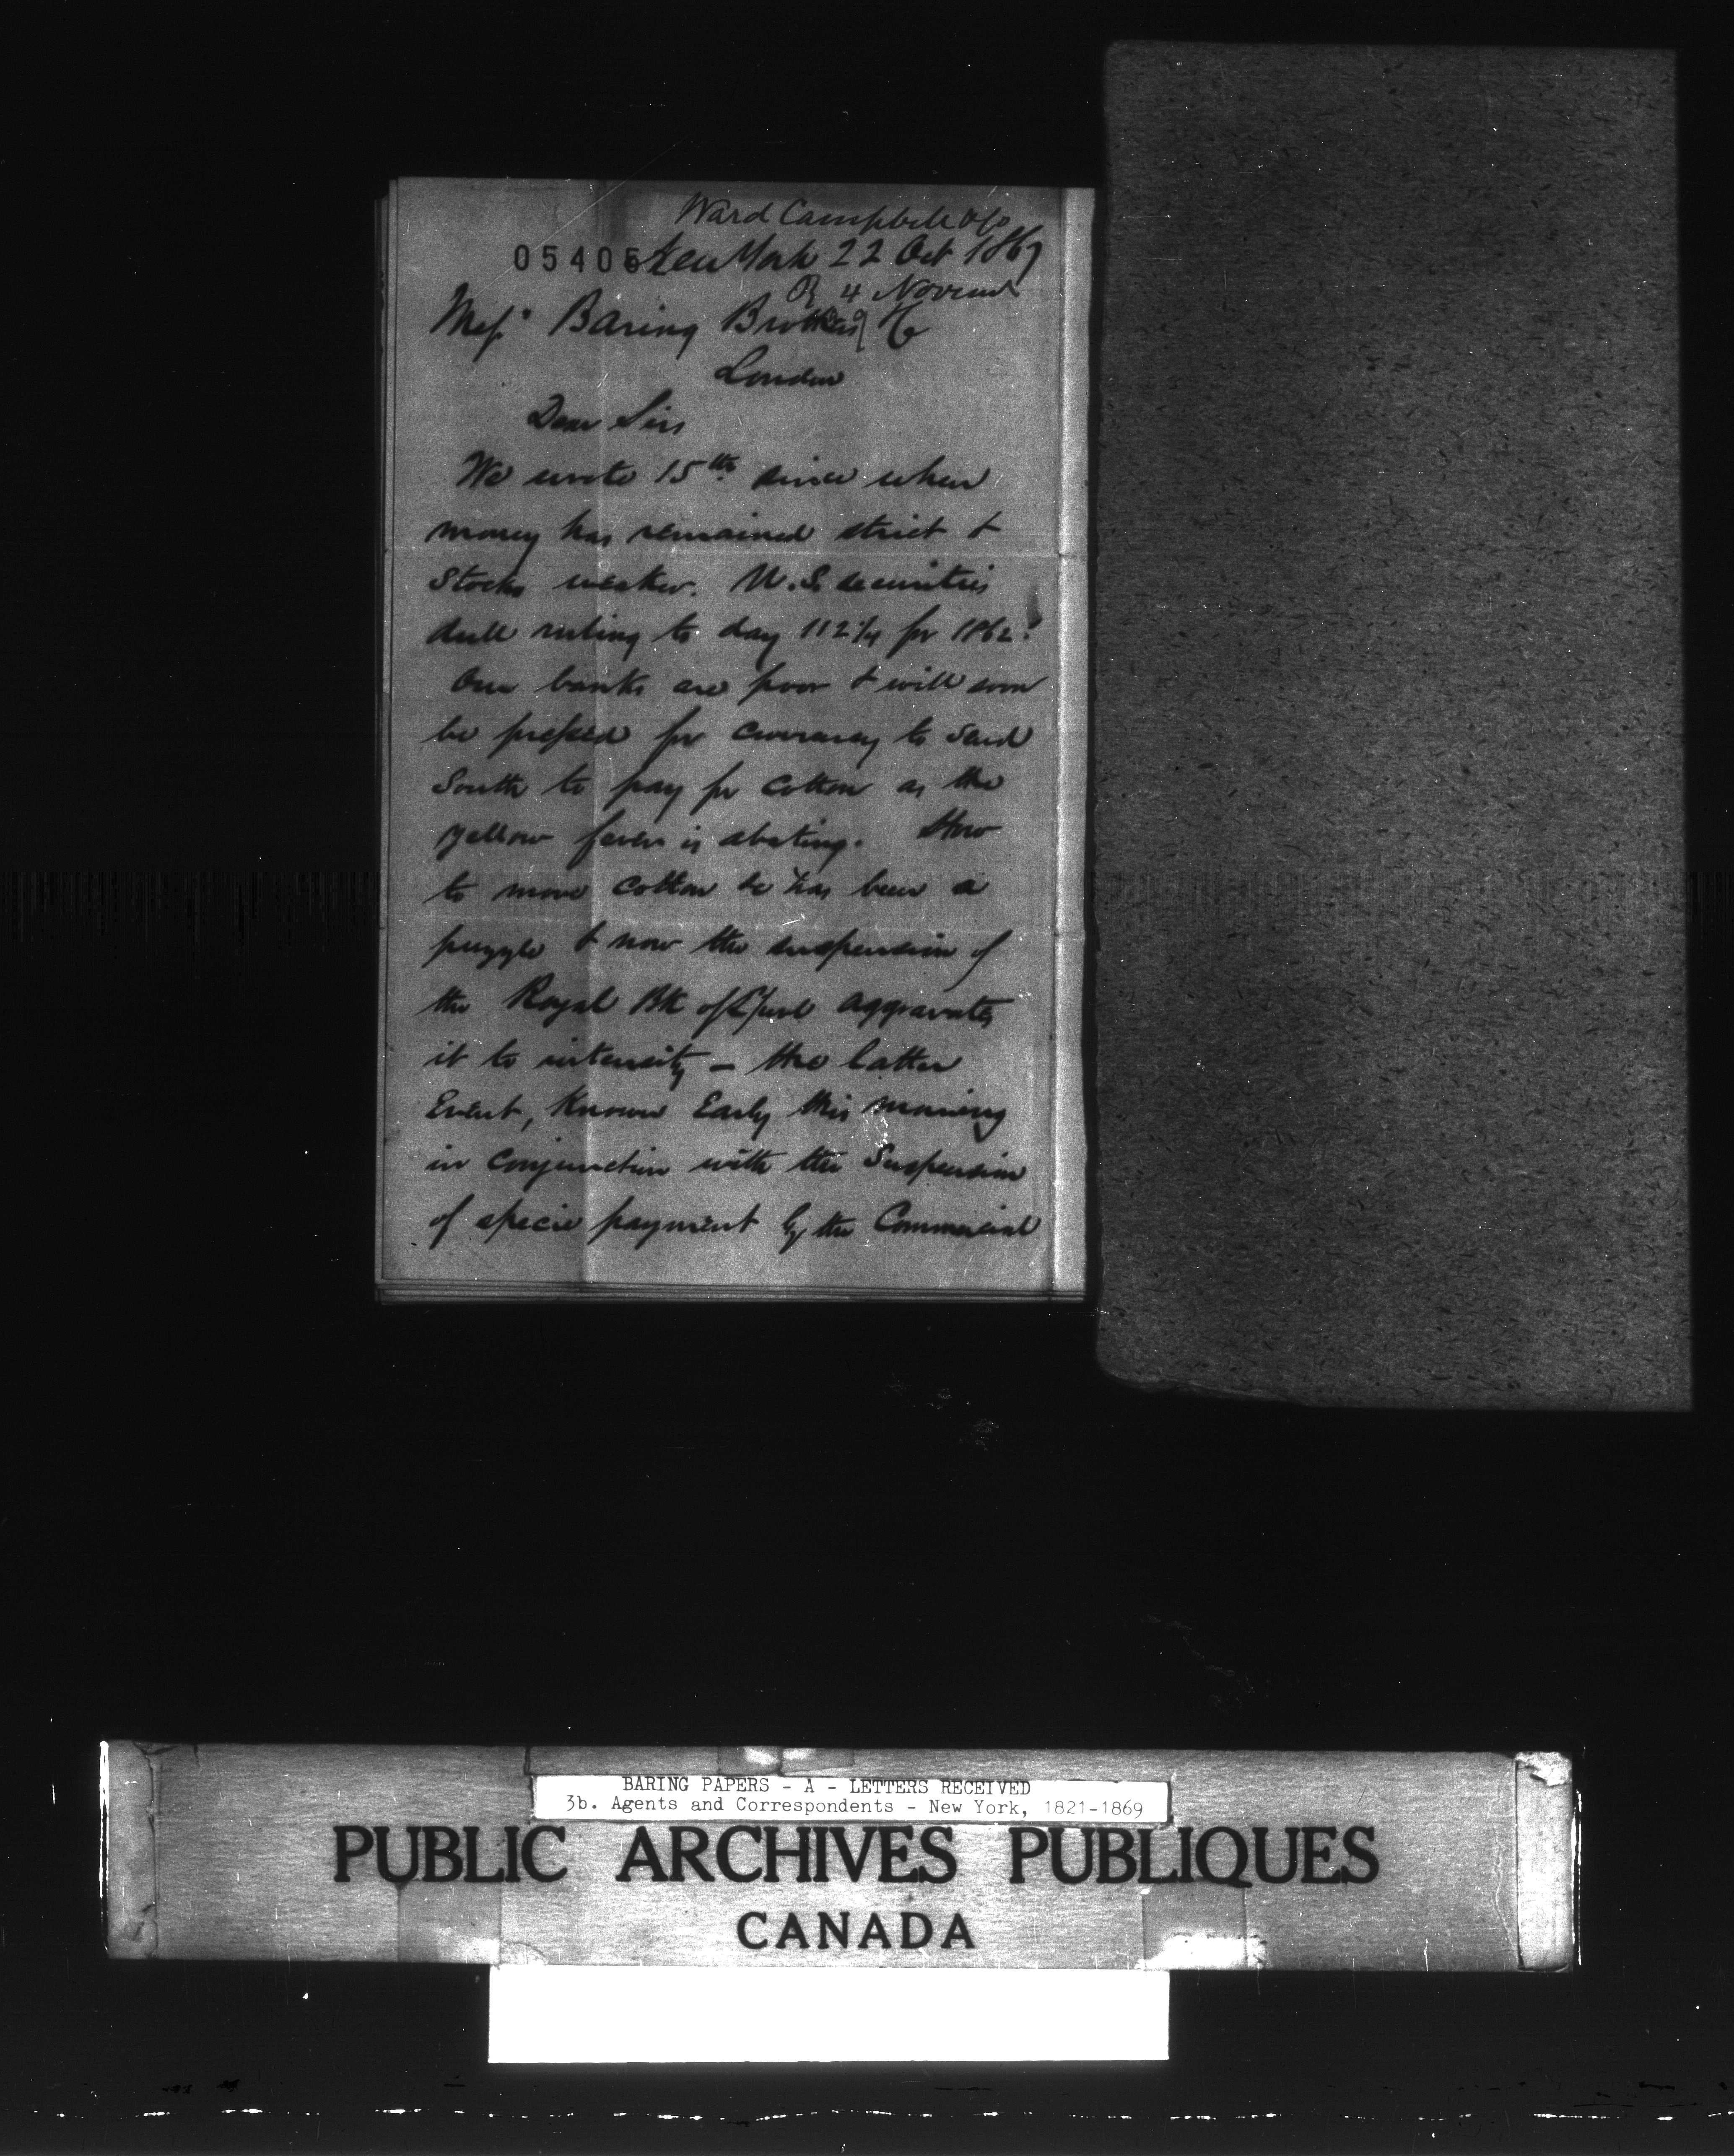 Ward Campbell & Co
05405 New York 22 Oct 1867
R 4 Novem
Mess^rs Baring Brothers & Co
London
Dear Sirs
We wrote 15th since when
money has remained strict &
Stocks weaker. U.S. securities
dull ruling to day 112 1/4 for 1862^s
Our banks are poor & will soon
be pressed for currency to send
South to pay for Cotton as the
yellow fever is abating. How
to move Cotton &c has been a
puzzle & now the suspension of
the Royal Bk of L'pool aggravates
it to intensity - the latter
Event, Known Early this morning
in Conjunction with the Suspension
of specie payment by the Commercial
BARING PAPERS - A - LETTERS RECEIVED
3b. Agents and Correspondents - New York, 1821-1869
PUBLIC ARCHIVES PUBLIQUES
CANADA